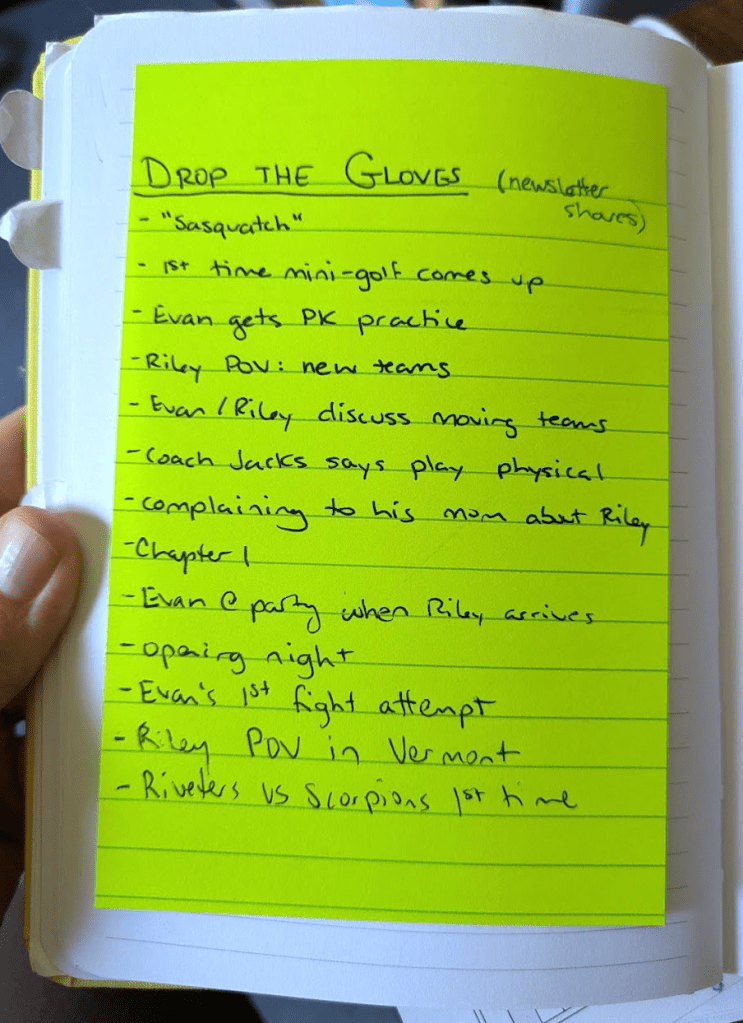 DROP THE GLOVES (newsletter
shares)
- "Sasquatch"
- 1st time mini-golf comes up
- Evan gets PK practice
- Riley POV: new teams
- Evan / Riley discuss moving teams
- Coach Jacks says play physical
- complaining to his mom about Riley
- Chapter 1
- Evan @ party when Riley arrives
- opening night
- Evan's 1st fight attempt
- Riley POV in Vermont
- Riveters vs Scorpions 1st time